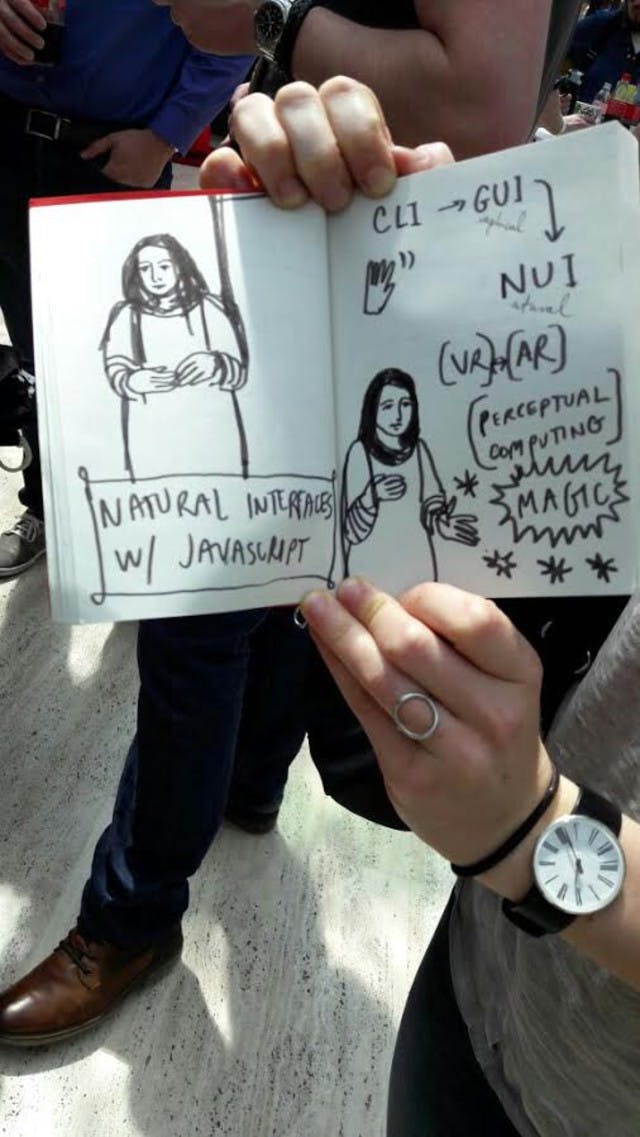 NATURAL INTERFACES
W/ JAVASCRIPT
CLI → GUI
graphical
NUI
natural
[VR]↔[AR]
[PERCEPTUAL
COMPUTING]
MAGIC